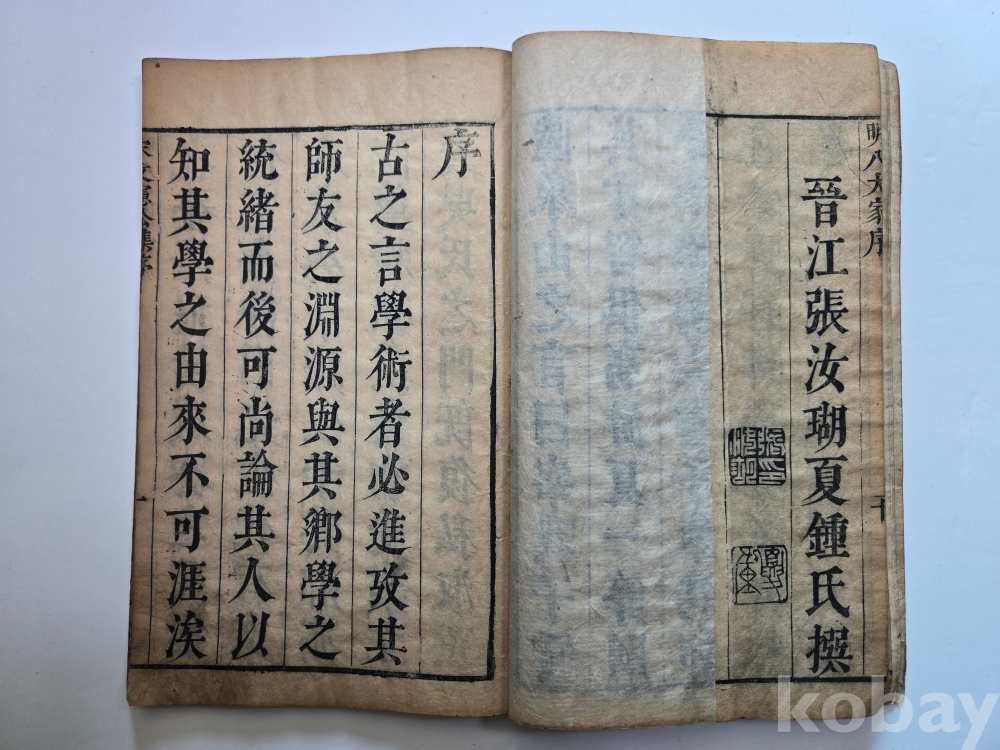 明八大家序
十
晉江張汝瑚夏鍾氏撰
序
古之言學術者必進攷其
師友之淵源與其鄉學之
統緒而後可尚論其人以
知其學之由來不可涯涘
一
kobay